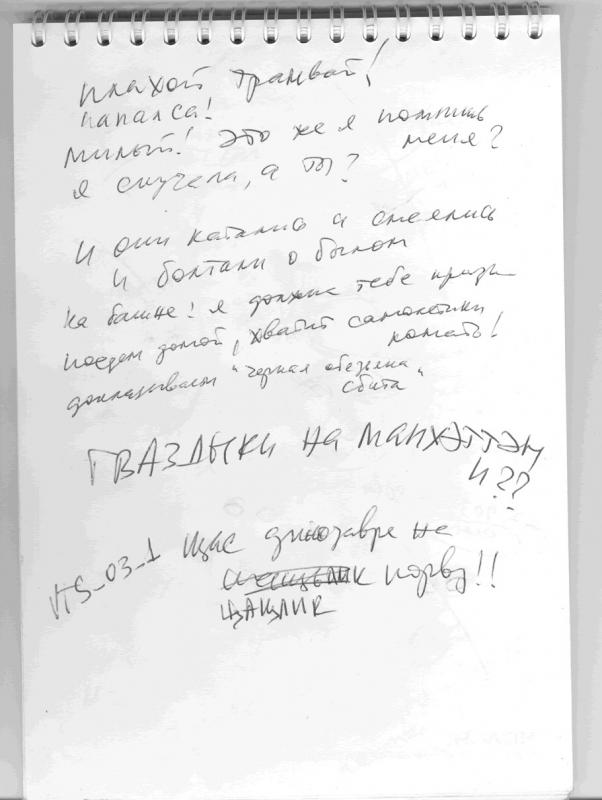 плахой трамвай!
папалса!
милый! это же я помнишь
меня?
я скучела, а ты?
И они катались и смеялись
И болтали о былом
На башне! я должна тебе
поедем домой, хватит самолетики
ломать!
докладываем "черная обезьяна"
сбита
ГВАЗДЫКИ НА МАНХЭТТЭН
И??
VTS_03_1 щас динозавре на
порву!!